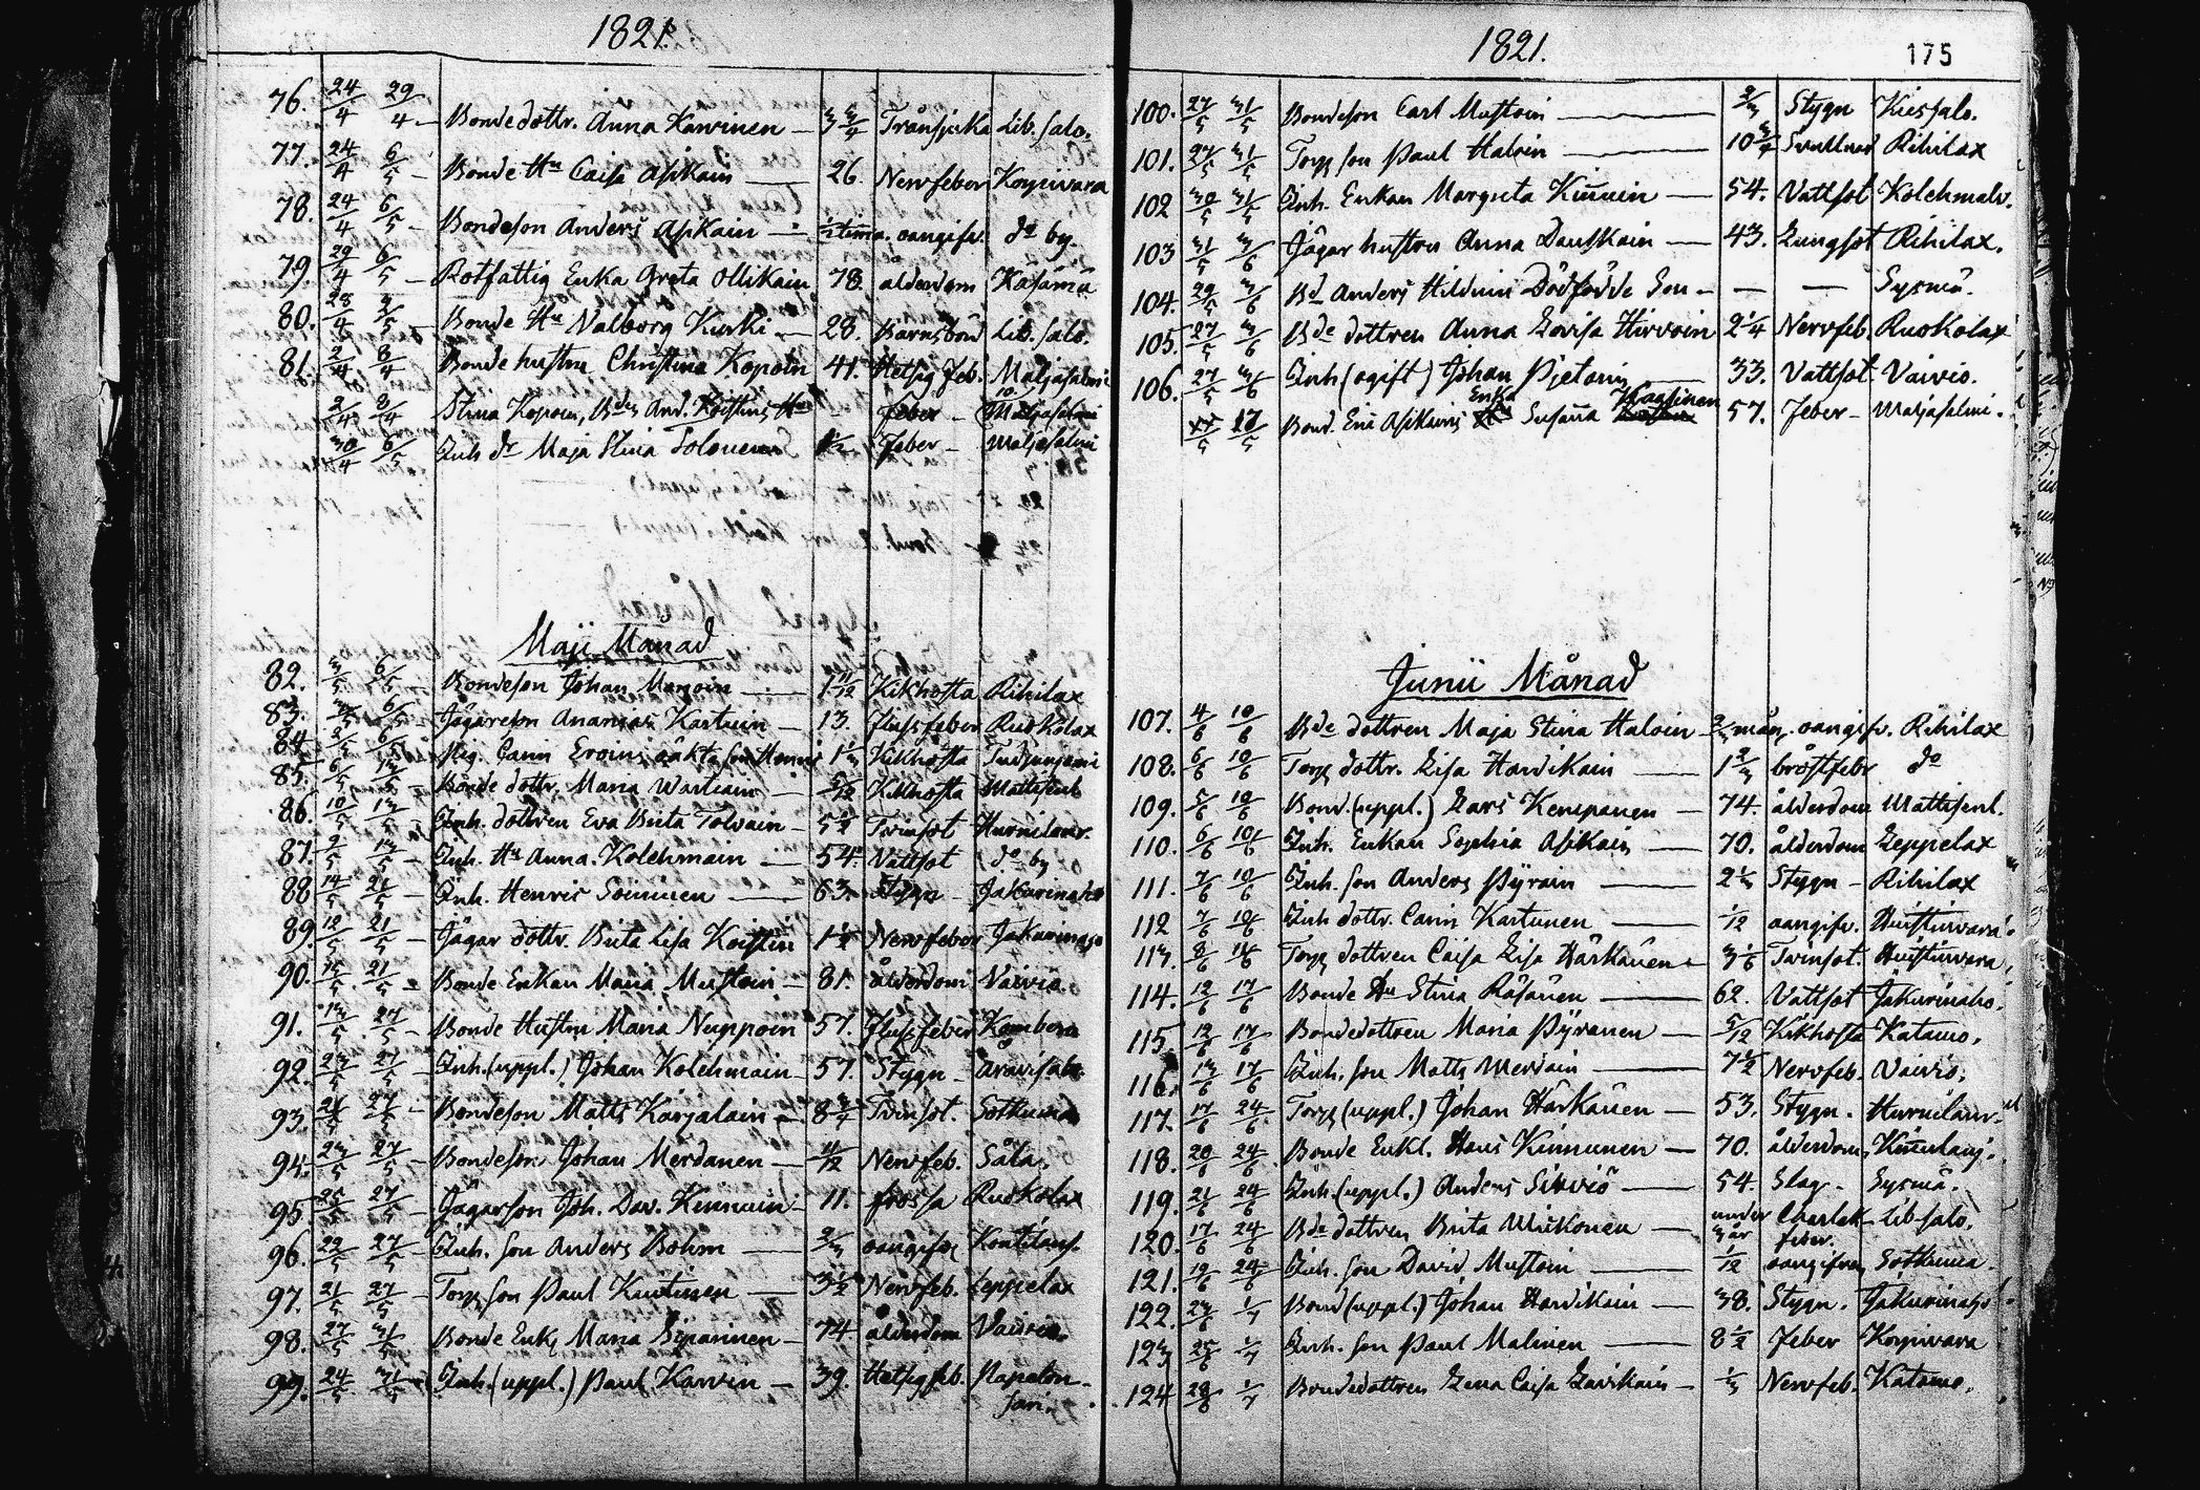 1821.
76. 24/4 29/4 - Bondedottr. Anna Karvinen - 3 3/4 Trånsjuka Lib. salo.
77. 24/4 6/5 - Bonde Hu Caisa Asikain - 26. Nervfeber Kopivara
78. 24/4 6/5 - Bondeson Anders Asikain - 1/2 tima. oangifv. do by.
79 29/4 6/5 - Rotfattig Enka Greta Ollikain 78. ålderdom Kasämä
80. 28/4 3/5 - Bonde Hu Valborg Kurki - 28. Barnsbörd Lib. salo.
81. 2/4 8/4 Bonde hustru Christina Kopoin 41. Hetsig feb. Maljasalmi
2/4 8/4 Stina Kopoin, Bdes And. Koistins Hu - feber - Maljasalmi
30/4 6/5 Inh dr Maja Stina Solonen 1/2 Feber - Maljasalmi
Maji Månad
82. 3/5 6/5 Bondeson Johan Manoin - 1 11/12 Kikhosta Rihilax
83. 3/5 6/5 Jägareson Ananias Kartuin - 13. Flussfeber Ruokolax
84 2/5 6/5 Pig. Carin Eroins oäkta son Henric 1 1/3 Kikhosta Tutjunjemi
85. 6/5 13/5 Bonde dottr. Maria Wartiain - 5/12 Kikhosta Mattisenl
86. 10/5 13/5 Inh. dottren Eva Brita Tolvain - 5 1/2 Tvinsot Hurnilamr.
87. 9/5 13/5 - Inh. Hu Anna Kolehmain - 54. Vattsot do by
88 14/5 21/5 - Inh. Henric Soininen - 63. Stygn - Jakurinaho
89. 12/5 21/5 - Jägar dottr. Brita Lisa Koistin 1 1/2 Nervfeber Jakurinaho
90. 15/5 21/5 - Bonde Enkan Maria Mustoin - 81. ålderdom Vaivio
91. 13/5 27/5 - Bonde Hustru Maria Nuppoin 57. Flussfeber Kombero
92. 23/5 27/5 - Inh. (uppl.) Johan Kolehmain - 57. Stygn - Aroisalo
93. 21/5 27/5 - Bondeson Matts Karjalain - 8 3/4 Tvinsot. Sotkuma
94. 23/5 27/5 - Bondeson Johan Merdanen - 11/12 Nervfeb. Såla.
95. 25/5 27/5 - Jägarson Joh. Dav. Kinnuin - 11. frossa Ruokolax
96. 22/5 27/5 - Inh. son Anders Bohm - 2/3 oangifv. Kontilans.
97. 21/5 27/5 - Torp. son Paul Kuntinen - 3 1/2 Nervfeb. Leppelax
98. 27/5 31/5 - Bonde Enk. Maria Siparinen - 74 ålderdom Vaivio.
99. 24/5 31/5 - Inh. (uppl.) Paul Karvin - 39. Hetsig feb. Papelon-
sari.
1821. 175
100. 27/5 31/5 Bondeson Carl Mustoin - 2/3 Stygn Kiessalo.
101. 27/5 31/5 Torp son Paul Haloin - 10 3/4 Svullnad Rihilax
102 30/5 31/5 Inh. Enkan Margreta Kinnuin - 54. Vattsot Kolehmalv.
103 31/5 3/6 Jägar hustru Anna Dauskain - 43. Lungsot Rihilax.
104. 29/5 3/6 Bd Anders Hilduin Dödfödde Son - - - Sysmä.
105. 27/5 3/6 Bde dottren Anna Lovisa Hirvoin 2 1/4 Nervfeb. Ruokolax
106. 27/5 3/6 Inh (ogift) Johan Pjetarin - 33. Vattsot Vaivio.
17/5 Bond. Eric Asikains Enka Susanna Haapinen 57. Feber - Maljasalmi.
Junii Månad
107. 4/6 10/6 Bde dottren Maja Stina Haloin - 2/3 mån. oangifv. Rihilax
108. 6/6 10/6 Torp dottr. Lisa Harvikain - 1 2/3 bröstfebr do
109. 5/6 10/6 Bond. (uppl.) Lars Kempanen - 74. ålderdom Mattisenl.
110. 6/6 10/6 Inh. Enkan Sophia Asikain - 70. ålderdom Leppelax
111. 7/6 10/6 Inh. son Anders Pyroin - 2 1/3 Stygn - Rihilax
112 7/6 10/6 Inh dottr. Carin Kartunen - 1/12 oangifv. Huistinvara.
113. 8/6 11/6 Torp dottren Caisa Lisa Härkänen 3 1/6 Tvinsot. Huistinvara.
114. 12/6 17/6 Bonde Hu Stina Räsänen - 62. Vattsot Jakurinaho.
115. 12/6 17/6 Bondedottren Maria Pyränen - 5/12 Kikhosta Katamo.
116. 13/6 17/6 Inh. son Matts Merdain - 7 1/2 Nervfeb. Vaivio.
117. 17/6 24/6 Torp (uppl.) Johan Härkänen - 53. Stygn. Hurnilamr.
118. 20/6 24/6 Bonde Enkl. Hans Kinnunen - 70. ålderdom
119. 21/6 24/6 Inh. (uppl.) Anders Sirviö - 54. Slag. Sysmä.
120. 17/6 24/6 Bde dottren Brita Mickonen - under 3 år Charlak. feber. Lib-salo.
121. 19/6 24/6 Inh. son David Mustoin - 1/12 oangifven Sotkuma.
122. 23/6 1/7 Bond (uppl.) Johan Harvikain - 38. Stygn. Jakurinaho.
123 25/6 1/7 Inh. son Paul Malinen - 8 1/2 Feber Kopivara
124 28/6 1/7 Bondedottren Lena Caisa Laivikain - 1/3 Nervfeb. Katamo.